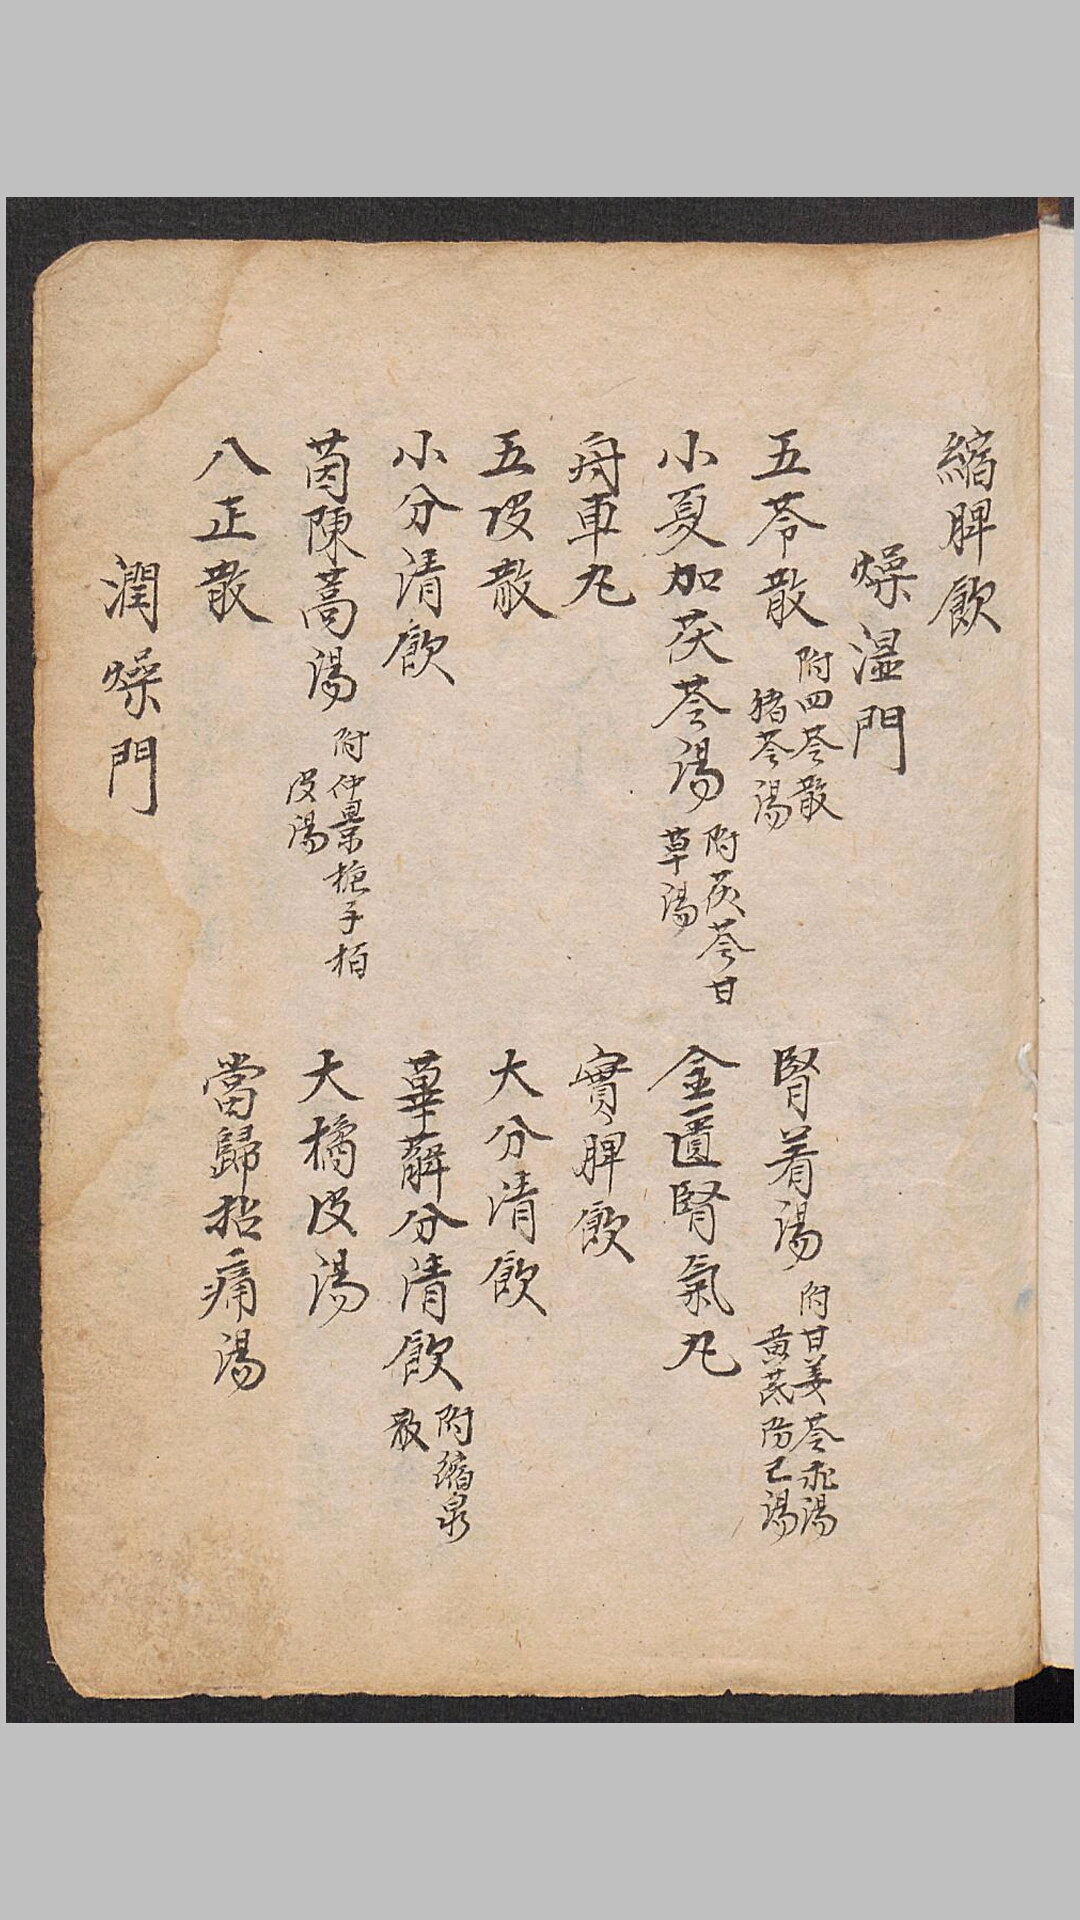 縮脾飲
燥湿門
五苓散 附四苓散 猪苓湯
腎着湯 附甘姜苓朮湯 黄芪防己湯
小夏加茯苓湯 附茯苓甘草湯
金匱腎氣丸
舟車丸
實脾飲
五皮散
大分清飲
小分清飲
萆薢分清飲 附縮泉散
茵陳蒿湯 附仲景梔子栢皮湯
大橘皮湯
八正散
當歸拈痛湯
潤燥門